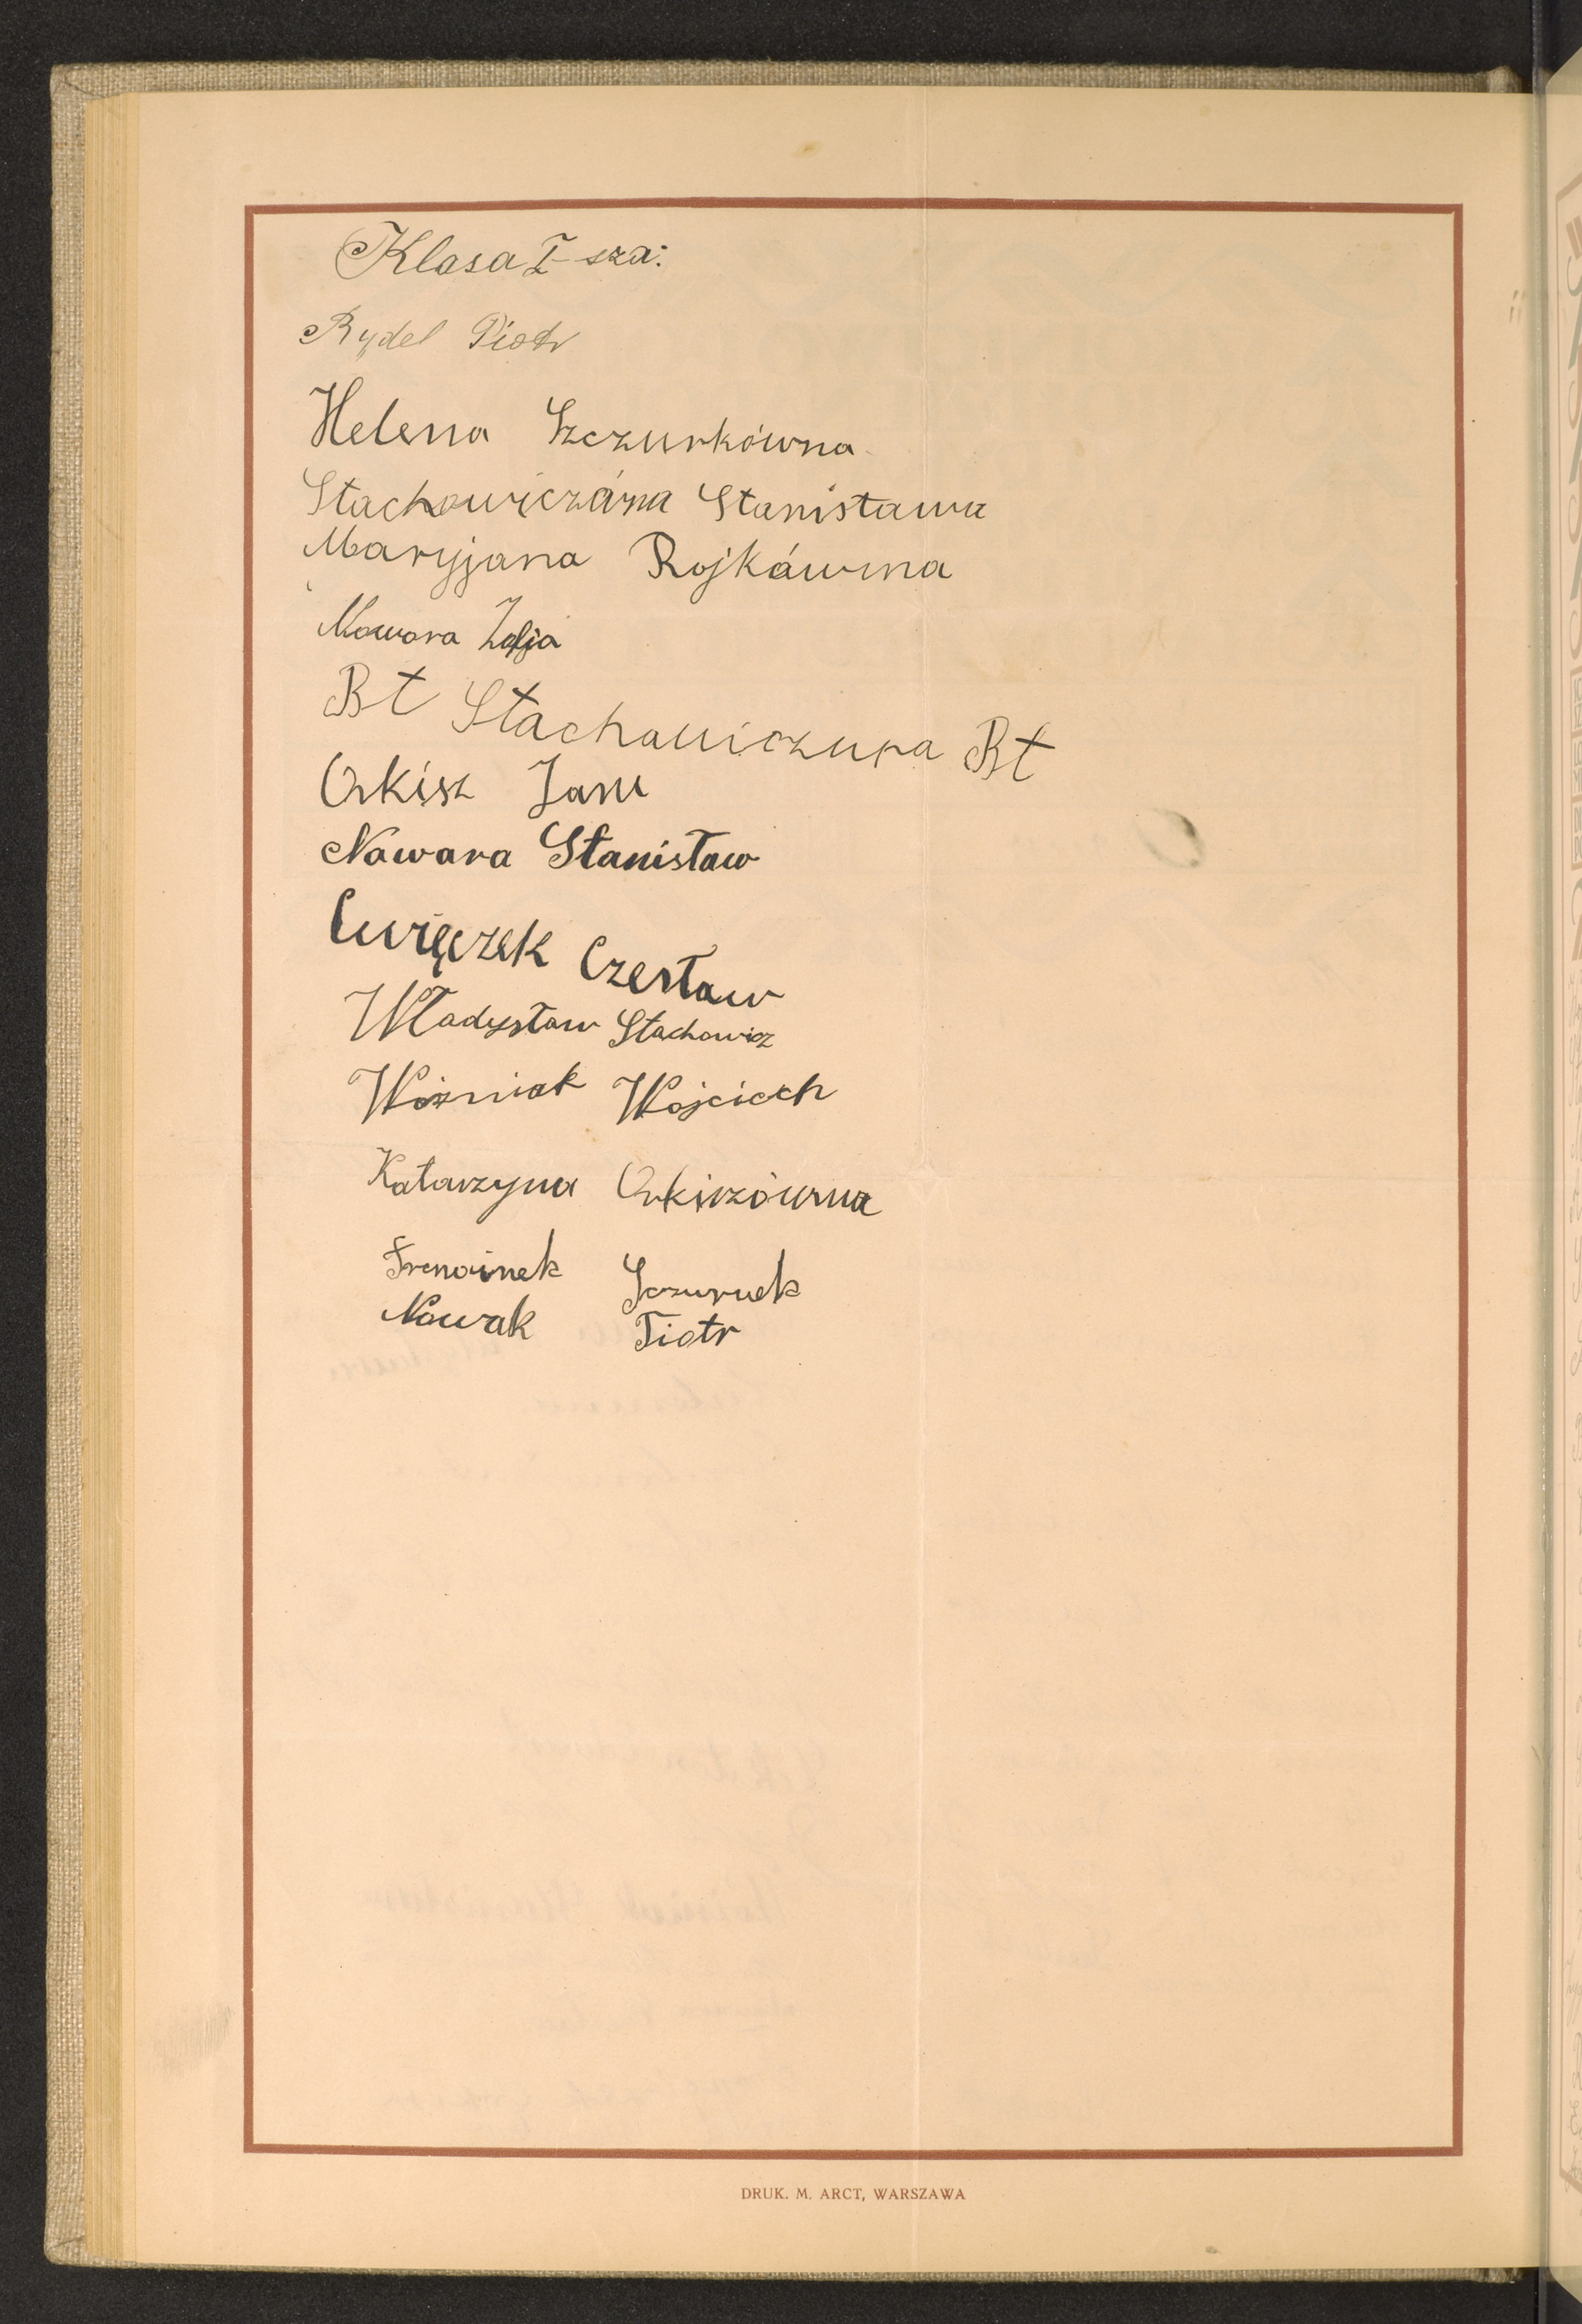 Klasa I-sza:
Rydel Piotr
Helena Szczurkówna
Stachowiczána Stanisława
Maryjana Rojkáwna
Nowara Zofja
Bt Stachawiczuna Bt
Orkisz Jan
Nawara Stanisław
Ćwięczek Czesław
Władysław Stachowicz
Woźniak Wojciech
Katarzyna Orkiszówna
Szczurek
Nowak Piotr
DRUK. M. ARCT, WARSZAWA